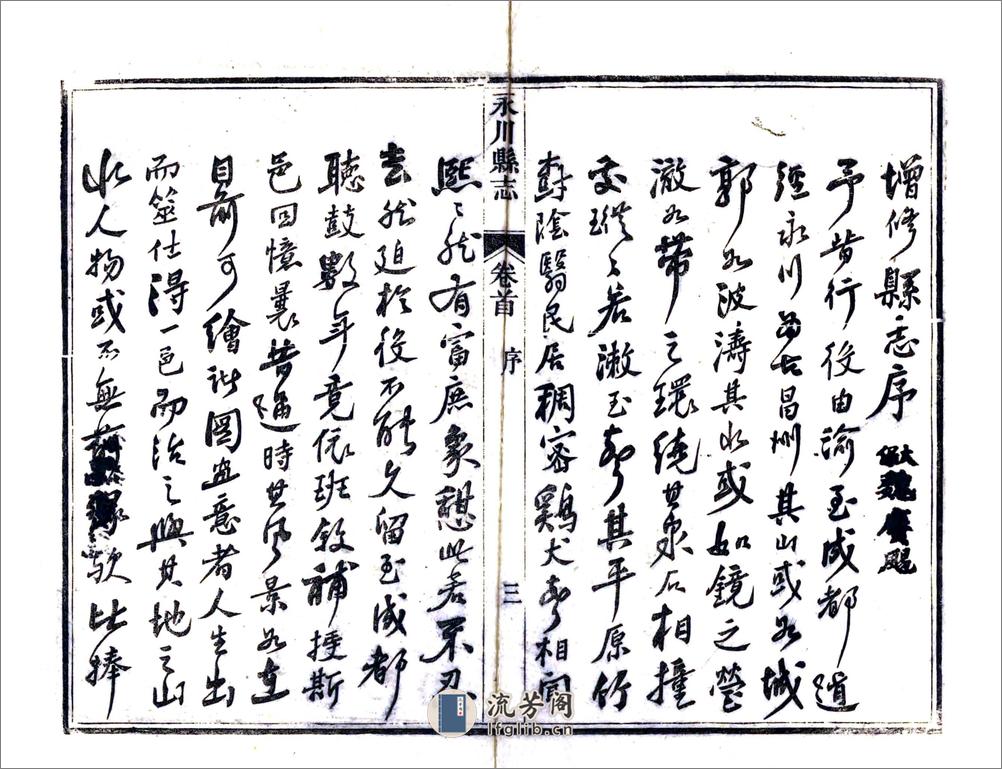 增修縣志序
予昔行役由渝至成都道
經永川留古昌州其山或如城
郭如波濤其水或如鏡之瑩
澈如帶之環繞其泉石相撞
若漱玉聲其平原竹
樹陰翳民居稠密鷄犬聲相聞
熙熙然有富庶象憇此若不忍
去然迫於役不能久留至成都
聽鼓數年竟依班敘補授斯
邑回憶曩昔過時其風景如在
目前可繪諸圖畫意者人生出
而筮仕得一邑而治之與其地之山
水人物或不無緣歟比捧
永川縣志
卷首
序
三
流芳閣
lfglib.cn